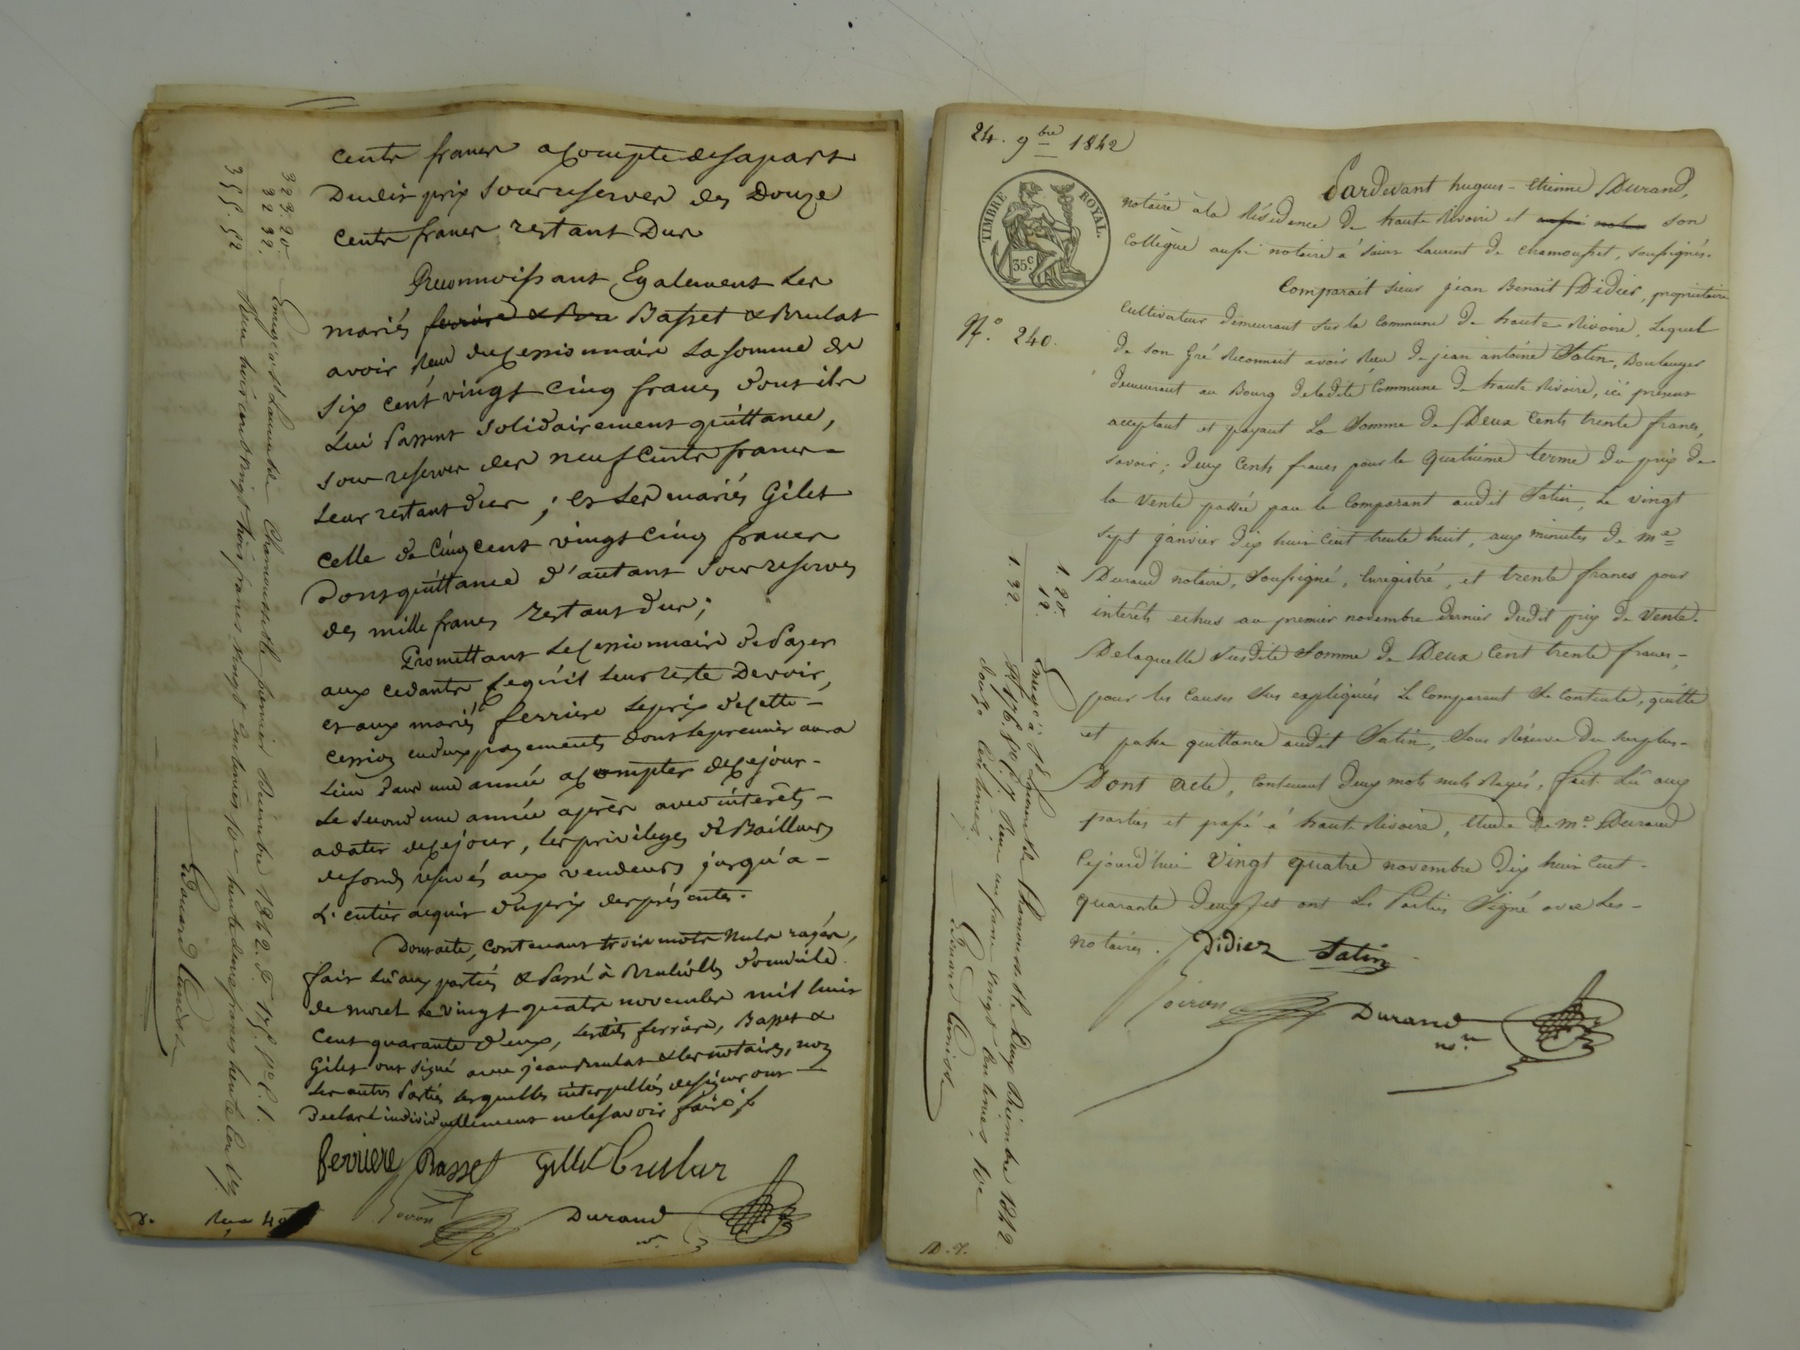 cents francs acompte de sa part
Dudit prix sous reserves des Douze
cents francs restant Dus
Reconnoissans Egalement Les
mariés ferriere & Bru Basset & Brulat
avoir Reçu du cessionnaire La somme de
six cent vingt cinq francs dont ils
Lui Passent solidairement quittance,
sous reserves des neuf Cents francs
Leur restant dus ; et Les mariés Gilet
celle de Cinq cent vingt Cinq francs
Dont quittance d'autant sous reserves
des mille francs restant dus ;
Promettant Le Cessionnaire de Payer
aux cedants ce qu'il leur reste Devoir,
et aux mariés ferriere Le prix de cette
cession en deux payements dont le premier aura
Lieu dans une année a compter de ce jour
Le second une année après avec intérêts
a dater de ce jour, les privileges de Bailleurs
de fonds reservés aux vendeurs jusqu'a
L'entier acquit du prix des présentes.
Dont acte, contenant trois mots nuls rayés,
fait Lû aux parties & Passé à Brulioles domicile
de moret Le vingt quatre novembre mil huit
Cent quarante deux, lesdits ferriere, Basset &
Gilet ont signé avec jean Brulat & les notaires, non
Les autres Parties lesquelles interpellées de signer ont
Declaré individuellement ne le savoir faire
ferriere Basset Gillet Brulat
Durand
323. 20.
32 32.
355. 52
Enreg. à St Laurent de Chamousset le premier Décembre 1842. f° 175. r° c. 1.
Reçu trois cent vingt trois francs vingt centimes pour trente deux francs trente deux c.
24. 9bre 1842
TIMBRE ROYAL.
35 c
N°. 240.
Pardevant hugues-Etienne Durand,
notaire à la Résidence de haute Rivoire et aussi notaire son
Collègue aussi notaire à Saint Laurent de chamousset, soussignés.
Comparait sieur jean Benoit Didier, propriétaire
Cultivateur demeurant sur la Commune de haute Rivoire, Lequel
de son Gré Reconnoit avoir Reçu de jean antoine Satin, Boulanger
demeurant au Bourg de ladite Commune de haute Rivoire, ici présent
acceptant et payant La Somme de Deux Cents trente francs,
savoir ; deux Cents francs pour le Quatrieme terme du prix de
la vente passée par le Comparant audit Satin, Le vingt
sept janvier dix huit cent trente huit, aux minutes de me
Durand notaire, soussigné, Enregistré, et trente francs pour
interêts echus au premier novembre dernier dudit prix de vente.
De laquelle susdite Somme de Deux Cent trente francs,
pour les causes sus expliquées Le Comparant se contente, quitte
et passe quittance audit Satin, sous Réserve du surplus.
Dont acte, contenant deux mots nuls Rayés, fait Lû aux
parties et passé à haute Rivoire, Etude de me. Durand
Cejourd'hui vingt quatre novembre dix huit Cent
quarante deux et ont Les Parties Signé avec Les
notaires.
Didier Satin
Durand
nre
1. 20.
12.
1. 32.
Enregé à St Laurent de Chamousset le deux Décembre 1842
Reçu un franc vingt centimes
douze centimes.